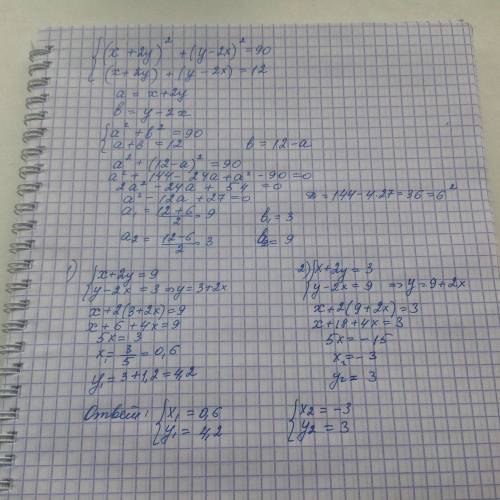 {(x + 2y)² + (y - 2x)² = 90
(x + 2y) + (y - 2x) = 12
a = x + 2y
b = y - 2x
{a² + b² = 90
a + b = 12 b = 12 - a
a² + (12 - a)² = 90
a² + 144 - 24a + a² - 90 = 0
2a² - 24a + 54 = 0
a² - 12a + 27 = 0 D = 144 - 4·27 = 36 = 6²
a₁ = (12 + 6)/2 = 9 b₁ = 3
a₂ = (12 - 6)/2 = 3 b₂ = 9
1) {x + 2y = 9
y - 2x = 3 ⇒ y = 3 + 2x
x + 2(3 + 2x) = 9
x + 6 + 4x = 9
5x = 3
x₁ = 3/5 = 0,6
y₁ = 3 + 1,2 = 4,2
2) {x + 2y = 3
y - 2x = 9 ⇒ y = 9 + 2x
x + 2(9 + 2x) = 3
x + 18 + 4x = 3
5x = -15
x₂ = -3
y₂ = 3
Ответ: {x₁ = 0,6
y₁ = 4,2
{x₂ = -3
y₂ = 3